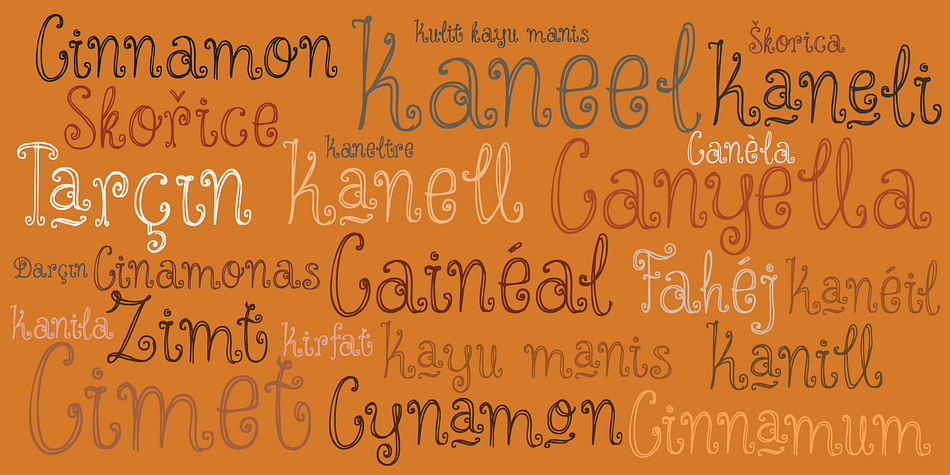 Cinnamon
Kulit kayu manis
Kaneel
Škorica
Kaneli
Skořice
Tarçın
Kaneltre
Kanell
Canèla
Canyella
Darçın
Cinamonas
Cainéal
Fahéj
Kanéil
Kanila
Zimt
Kirfat
Kayu manis
Kanill
Cimet
Cynamon
Cinnamum